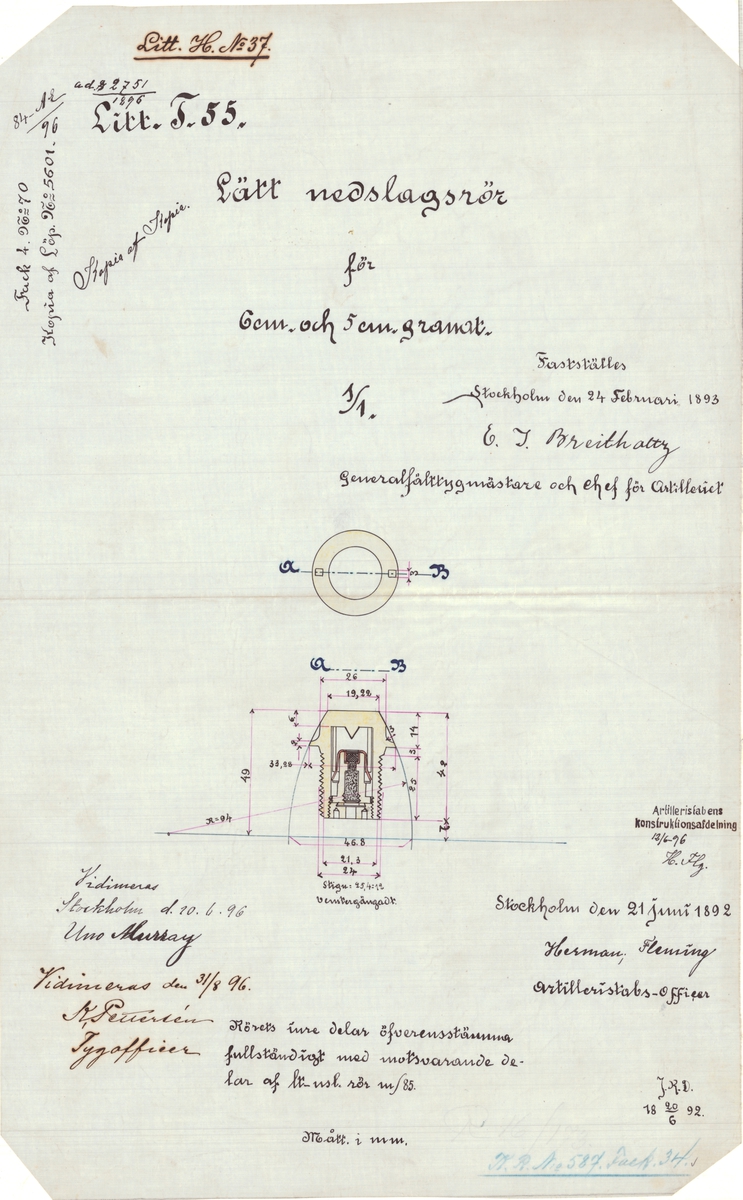 Litt. H. No 37.
ad. 2751
1896
Litt. T. 55.
96
Fack 4. No 70
Kopia af Löp. No 5601.
Kopia af Kopia.
Lätt nedslagsrör
för
6cm. och 5cm. granat.
1/1.
Fastställes
Stockholm den 24 Februari 1893
E. J. Breitholtz
Generalfälttygmästare och Chef för Artilleriet
A
B
3
A
B
26
19,22
14
49
33,28
25
48
R=94
46.8
21,3
24
Stign: 25,4:12
Venstergängadt.
Artilleristabens
Konstruktionsafdelning
12/6-96
H. Flg.
Vidimeras
Stockholm d. 20. 6. 96
Uno Murray
Stockholm den 21 juni 1892
Herman Fleming
Artilleristabs-Officer
Vidimeras den 31/8 96.
K. Pettersén
Tygofficer
Rörets inre delar öfverensstämma
fullständigt med motsvarande de-
lar af lt. nsl. rör m/85.
J.R.D.
18 20/6 92.
Mått. i mm.
K. R. No 587. Fack. 34.